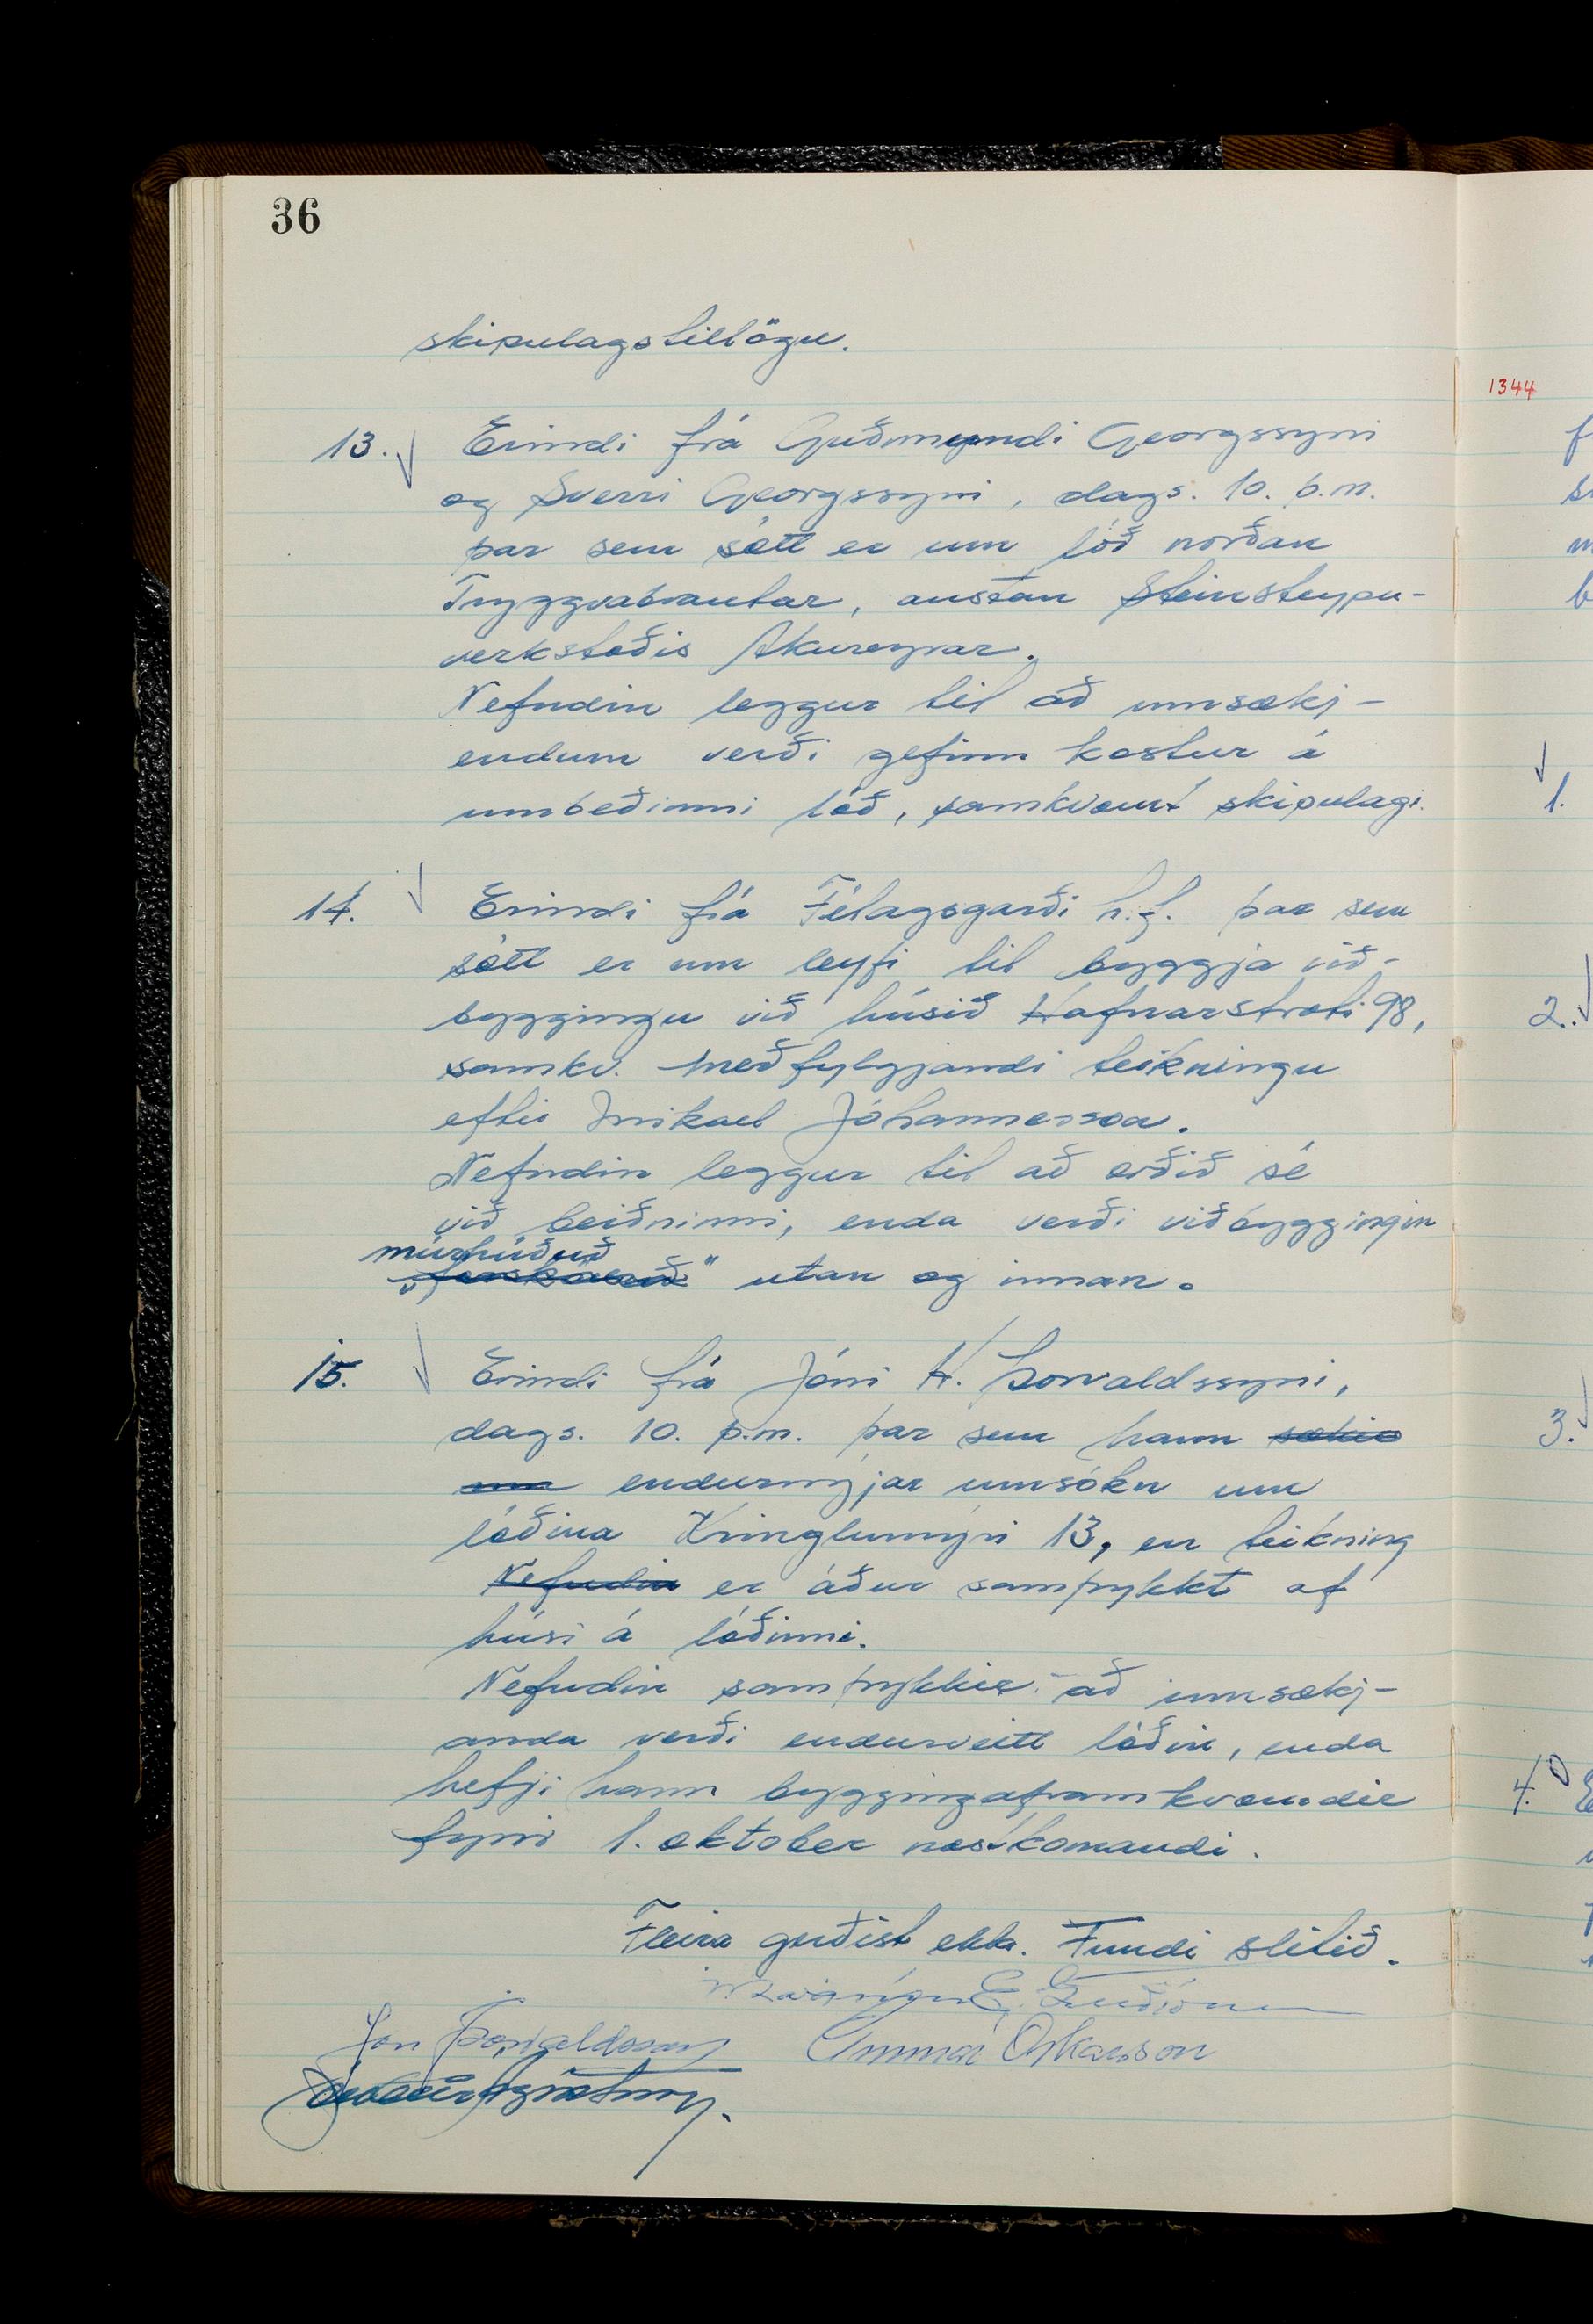 36
skipulagstillögu.
13. Erindi frá Guðmundi Georgssyni
og Sverri Georgssyni, dags. 10. þ.m.
þar sem sótt er um lóð norðan
Tryggvabrautar, austan Steinsteypu-
verkstæðis Akureyrar.
Nefndin leggur til að umsækj-
endum verði gefinn kostur á
umbeðinni lóð, samkvæmt skipulagi.
14. Erindi frá Félagsgarði h.f. þar sem
sótt er um leyfi til byggja við-
byggingu við húsið Hafnarstræti 98,
samkv. meðfylgjandi teikningu
eftir Mikael Jóhannesson.
Nefndin leggur til að orðið sé
við beiðninni, enda verði viðbyggingin
múrhúðuð
" utan og innan.
15. Erindi frá Jóni H. Þorvaldssyni,
dags. 10. þ.m. þar sem hann sækir
um endurnýjar umsókn um
lóðina Kringlumýri 13, en teikning
Nefndin er áður samþykkt af
húsi á lóðinni.
Nefndin samþykkir að umsækj-
anda verði endurveitt lóðin, enda
hefji hann byggingaframkvæmdir
fyrir 1. október næstkomandi.
Fleira gerðist ekki. Fundi slitið.
E. Guðjónsson
Jón Þorvaldsson
1344
1.
2.
3.
4.